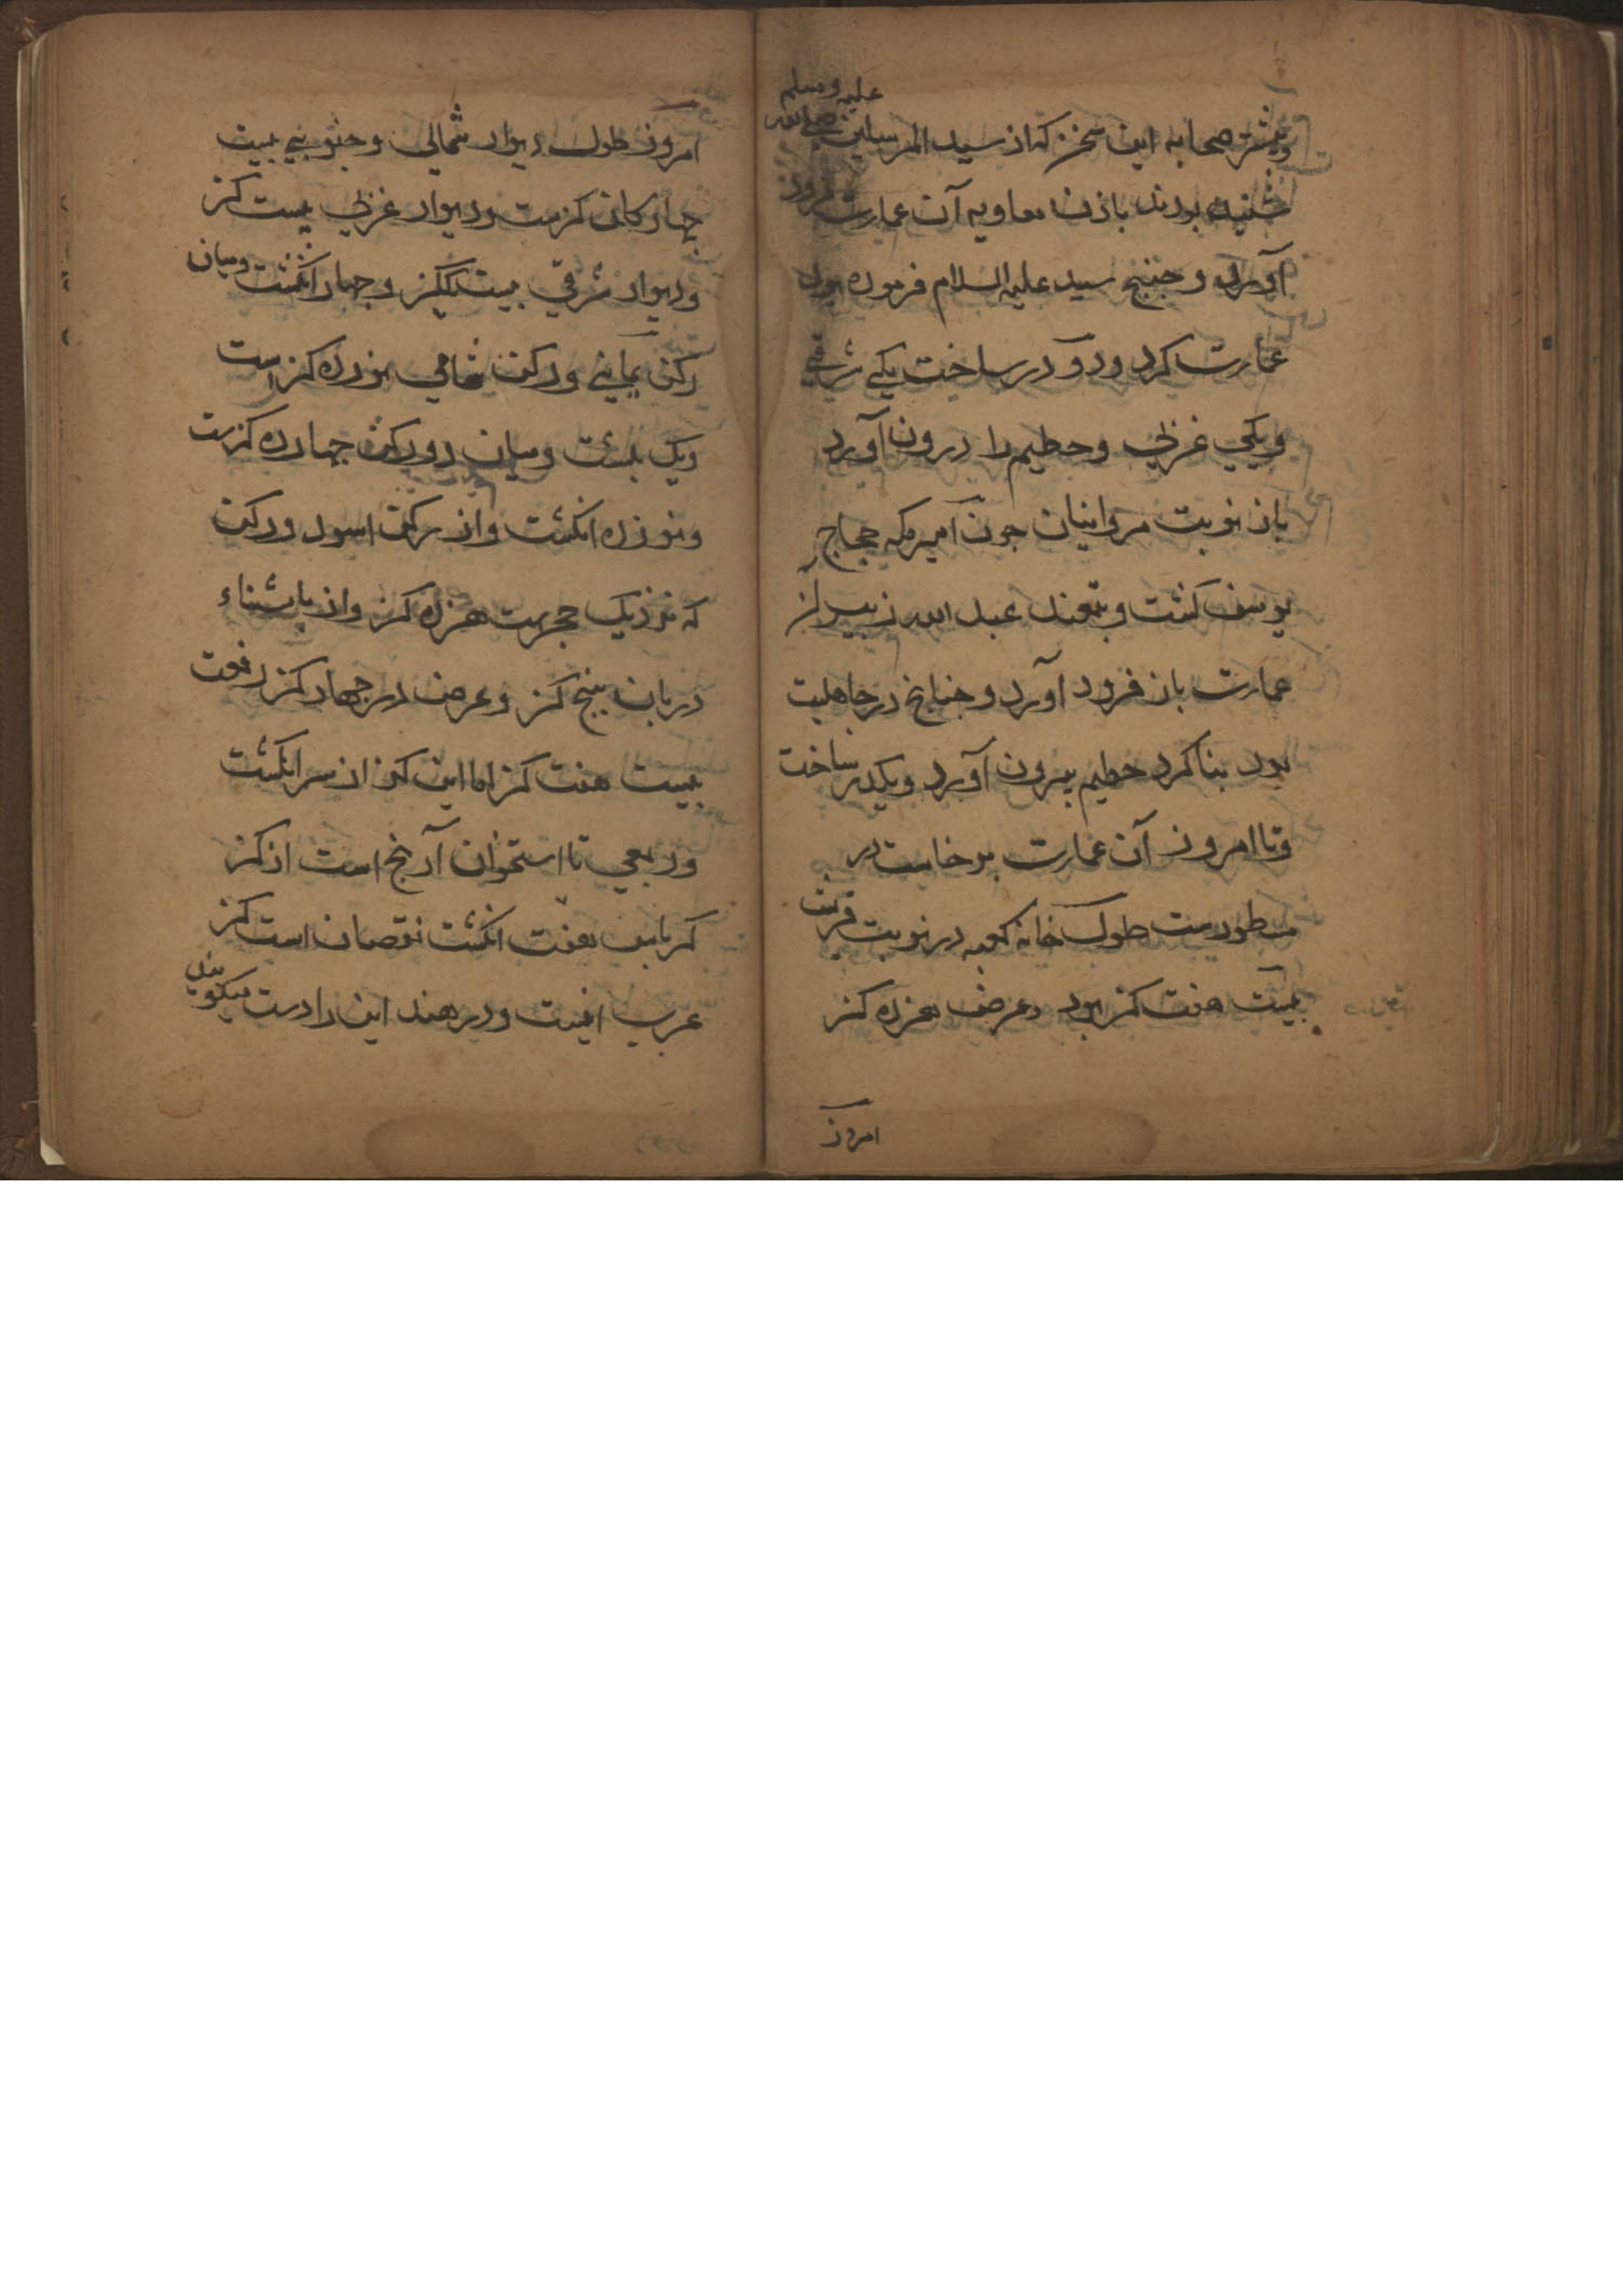 وبیشتر صحابه این سخن که از سید المرسلین صلی الله علیه وسلم
شنیده بودند باذن معاویه آن عمارت فرود
آورد و جنبج سید علیه السلام فرموده بود
عمارت کرد و دو در ساخت یکی شرقی
ویکی غربی وحطیم را درون آورد
باز نوبت مروانیان جون امیر مکه حجاج
یوسف کشت و عبد الله زبیر از
عمارت باز فرود آورد و جنابخ در جاهلیت
بود بنا کرد حطیم بیرون آورد ویکدر ساخت
وتا امروز آن عمارت برخاست در
مسطورست طول خانه کعبه در نوبت قریش
بیست هفت کز بود وعرض هزده کز
امروز
امروز طول دیوار شمالی وجنوبی بیست
جهارکان کزست ودیوار غربی بیست کز
ودیوار شرقی بیست یککز وجهار انکشت ومیان
رکن یمانی ورکن شامی نوزده کز است
ویک بلشت ومیان دو رکن جهارده کزست
ونوزده انکشت واز رکن اسود ورکن
که نزدیک حجرست هزده کز واز باشناء
دربان بنج کز وعرض در جهار کز رفعت
بیست هفت کز اما این کز از سر انکشت
وربعی تا استخوان آرنج است از کز
کرباس هفت انکشت نقصان است کز
عرب اینست ودر هند این را دست میکویند